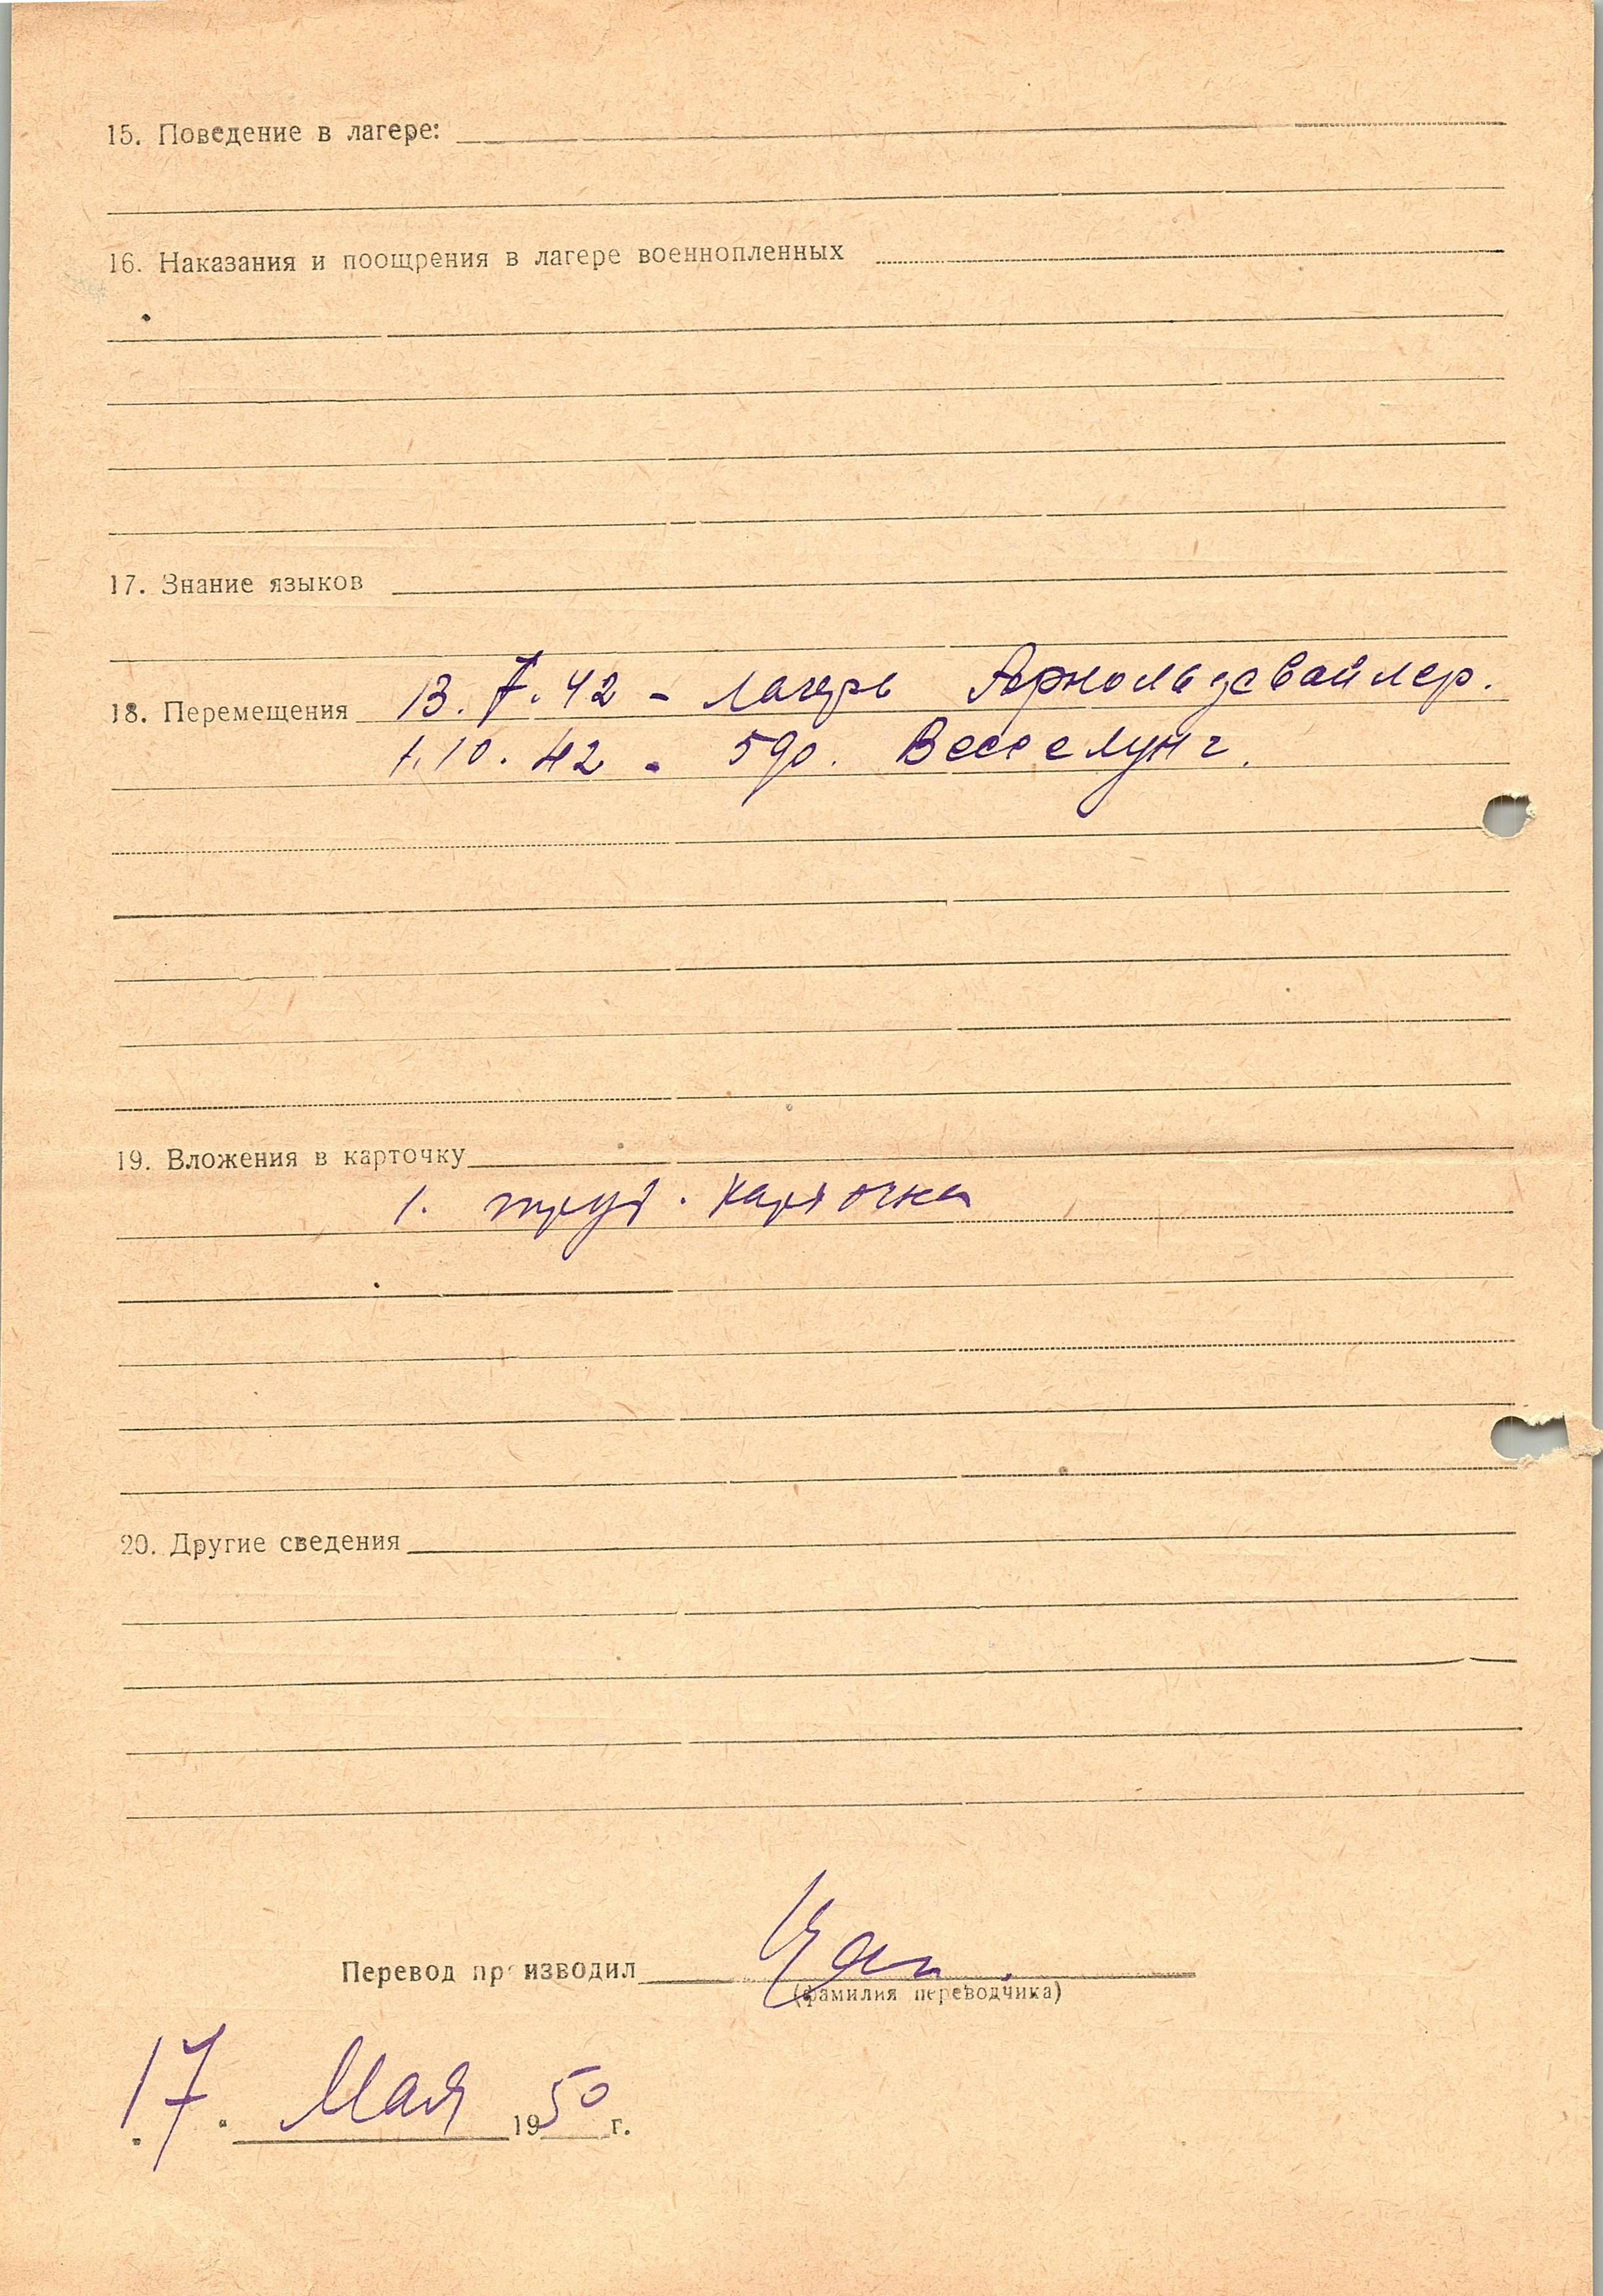 15. Поведение в лагере:
16. Наказания и поощрения в лагере военнопленных
17. Знание языков
18. Перемещения 13.7.42 - лагерь Арнольдсвайлер.
1.10.42 - 590. Весселунг.
19. Вложения в карточку
1. труд. карточка
20. Другие сведения
Перевод производил
(фамилия переводчика)
17. Мая 1950 г.